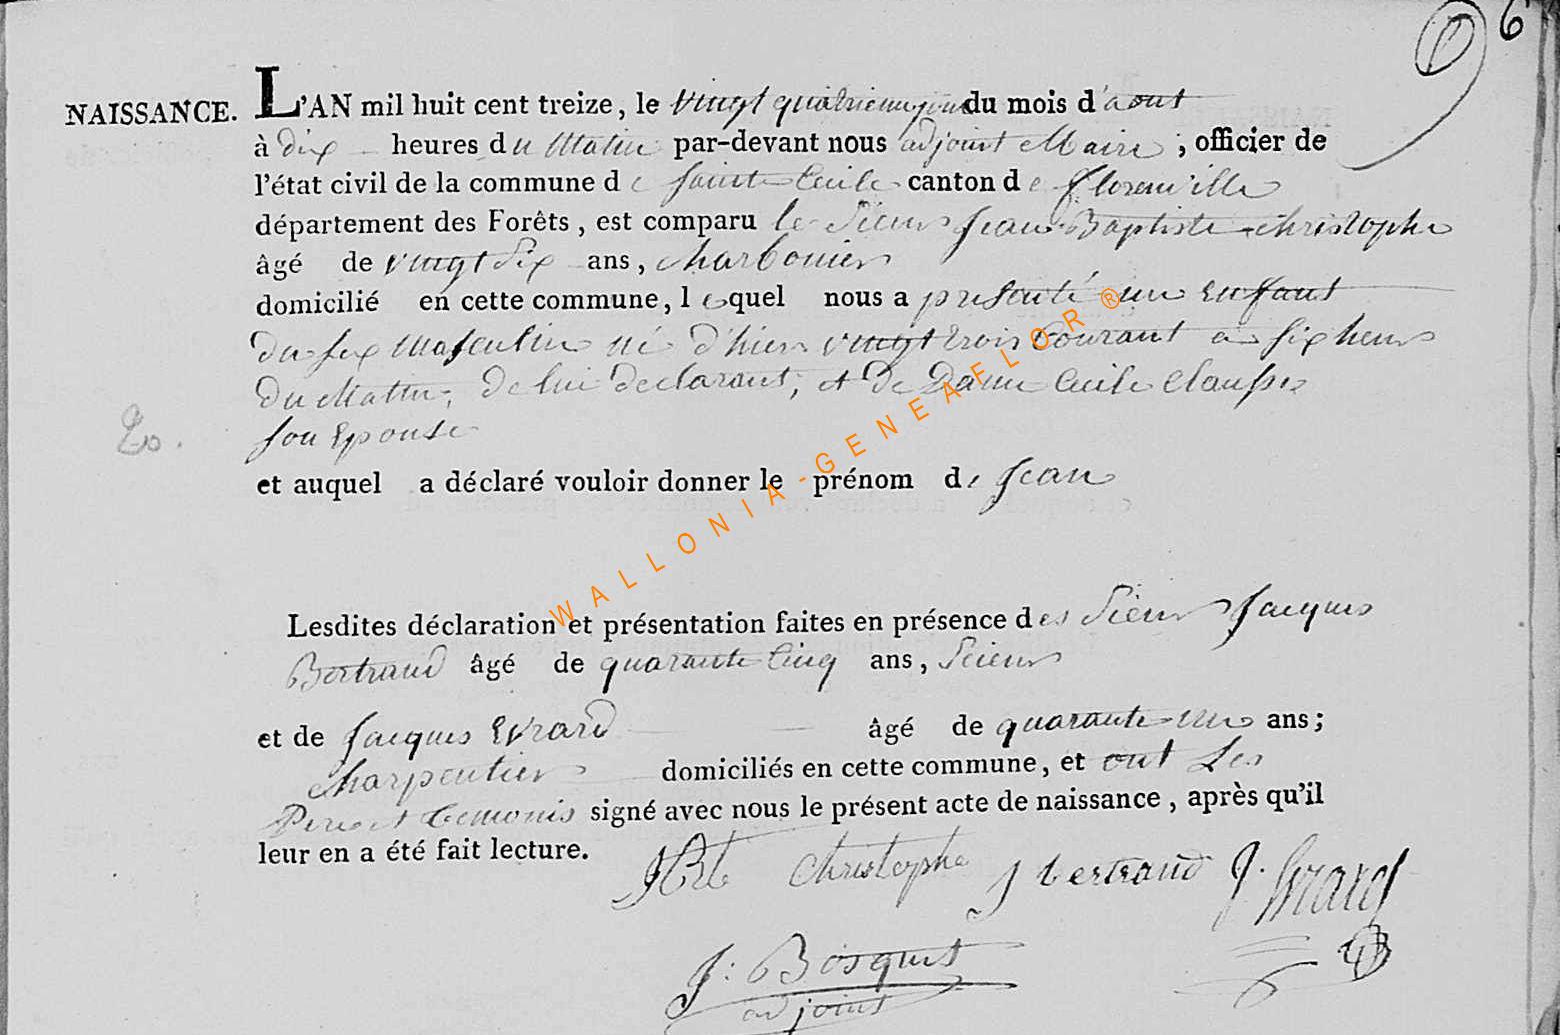 6
NAISSANCE. L'AN mil huit cent treize, le vingt quatrieme jour du mois d'aout
à dix heures du Matin par-devant nous adjoint Maire ; officier de
l'état civil de la commune de Sainte Cecile canton de florenville
département des Forêts, est comparu le Sieur Jean Baptiste christophe
âgé de vingt Six ans, charbonier
domicilié en cette commune, lequel nous a presenté un Enfant
du sex Masculin né d'hier vingt trois Courant a Six heurs
du Matin, de lui declarant, et de Dame Cecile
son Epouse
et auquel a déclaré vouloir donner le prénom de Jean
Lesdites déclaration et présentation faites en présence des Sieur Jacques
Bertrand âgé de quarante Cinq ans, Scieur
et de Jacques Evrard âgé de quarante un ans ;
charpentier domiciliés en cette commune, et ont Les
Pere et temonis signé avec nous le présent acte de naissance, après qu'il
leur en a été fait lecture.
JBte Christophe J bertrand J. Evrard
J: Bosquet
adjoint
WALLONIA-GENEAFLOR ®